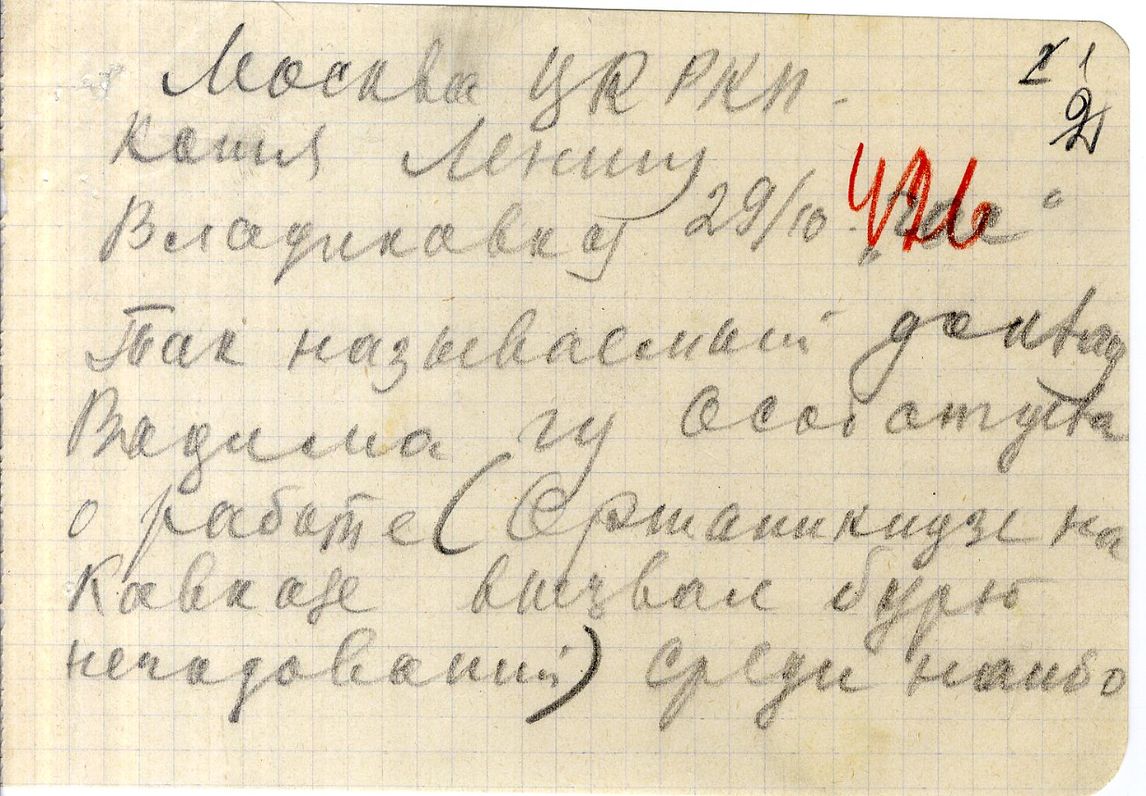 Москва ЦК РКП.
1
2
Копия Ленину
Владикавказ 29/10.
Так называемый доклад
Вадима из Особ отдела
о работе (Орджаникидзе на
Кавказе вызвал бурю
негодований) среди наибо